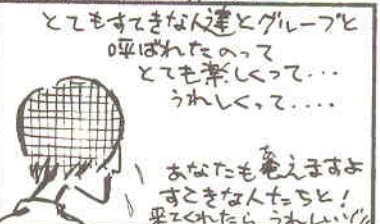 とてもすてきな人達とグループと
呼ばれたのって
とても楽しくって…
うれしくって‥‥
あなたも
えますよ
すてきな人たちと！
来てくれたら うれしい